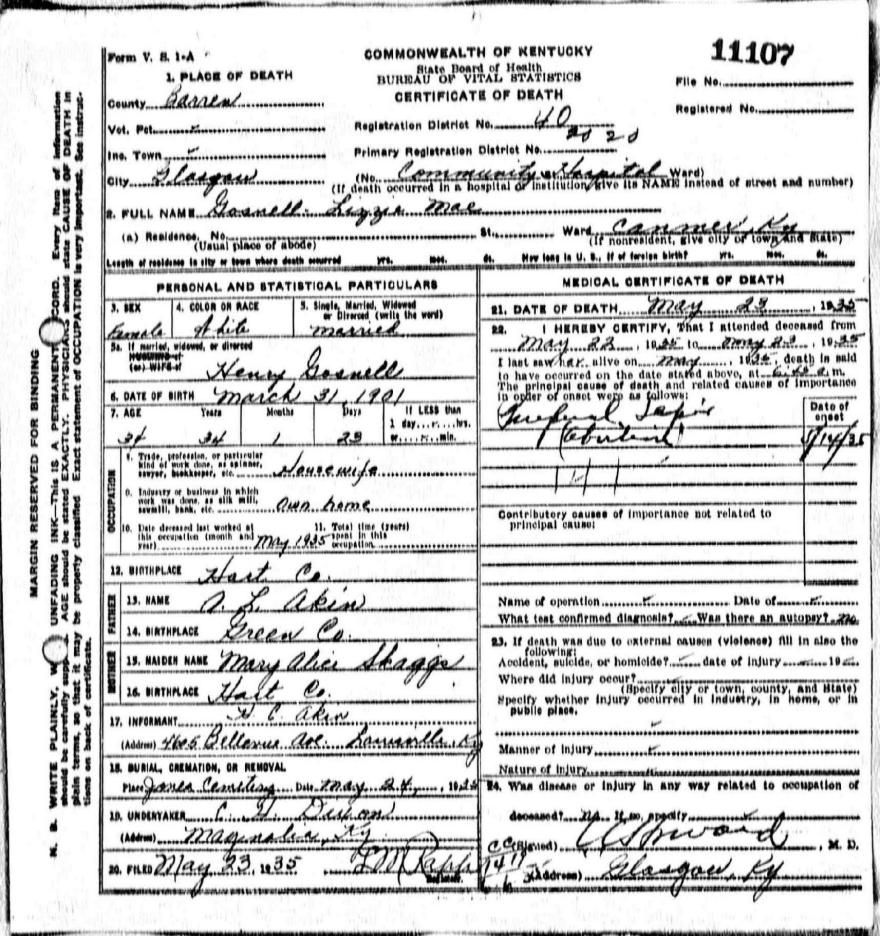 Form V. S. 1-A
COMMONWEALTH OF KENTUCKY
State Board of Health
BUREAU OF VITAL STATISTICS
CERTIFICATE OF DEATH
11107
File No.
Registered No.
1. PLACE OF DEATH
County Barren
Vot. Pct.
Inc. Town
City Glasgow
Registration District No. 40
Primary Registration District No. 20 20
(No. Community Hospital Ward)
(If death occurred in a hospital or institution, give its NAME instead of street and number)
2. FULL NAME Gosnell Lizzie Mae
(a) Residence. No. St., Ward Canmer, Ky
(Usual place of abode) (If nonresident, give city or town and State)
Length of residence in city or town where death occurred yrs. mos. ds. How long in U. S., if of foreign birth? yrs. mos. ds.
PERSONAL AND STATISTICAL PARTICULARS
3. SEX
Female
4. COLOR OR RACE
White
5. Single, Married, Widowed
or Divorced (write the word)
married
5a. If married, widowed, or divorced
HUSBAND of
(or) WIFE of Henry Gosnell
6. DATE OF BIRTH March 31, 1901
7. AGE Years Months Days If LESS than
1 day, hrs.
or min.
34 34 1 23
OCCUPATION
8. Trade, profession, or particular
kind of work done, as spinner,
sawyer, bookkeeper, etc. Housewife
9. Industry or business in which
work was done, as silk mill,
sawmill, bank, etc. own home
10. Date deceased last worked at
this occupation (month and
year) May 1935
11. Total time (years)
spent in this
occupation.
12. BIRTHPLACE Hart Co.
FATHER
13. NAME A. L. Akin
14. BIRTHPLACE Green Co.
MOTHER
15. MAIDEN NAME Mary Alice Skaggs
16. BIRTHPLACE Hart Co.
17. INFORMANT H C. Akin
(Address) 4605 Bellevue Ave. Louisville, Ky
18. BURIAL, CREMATION, OR REMOVAL
Place Jones Cemetery Date May 24, 1935
19. UNDERTAKER C. H. Dixon
(Address) Magnolia, Ky
20. FILED May 23, 1935
Registrar.
MEDICAL CERTIFICATE OF DEATH
21. DATE OF DEATH May 23, 1935
22. I HEREBY CERTIFY, That I attended deceased from
May 22, 1935 to May 23, 1935
I last saw her alive on May, 1935, death is said
to have occurred on the date stated above, at 6:45 a m.
The principal cause of death and related causes of importance
in order of onset were as follows:
Date of
onset
Puerperal Sepsis
(abortion) 5/14/35
141
Contributory causes of importance not related to
principal cause:
Name of operation Date of
What test confirmed diagnosis? Was there an autopsy? no
23. If death was due to external causes (violence) fill in also the
following:
Accident, suicide, or homicide? date of injury 19
Where did injury occur?
(Specify city or town, county, and State)
Specify whether injury occurred in industry, in home, or in
public place.
Manner of injury
Nature of injury
24. Was disease or injury in any way related to occupation of
deceased? no If so, specify
(Signed) , M. D.
(Address) Glasgow, Ky
MARGIN RESERVED FOR BINDING
N. B. WRITE PLAINLY, UNFADING INK—This is a PERMANENT Every item of information
should be carefully AGE should be stated EXACTLY. PHYSICIANS should state CAUSE OF DEATH in
plain terms, so that it may be properly classified. Exact statement of OCCUPATION is very important. See instruc-
tions on back of certificate.